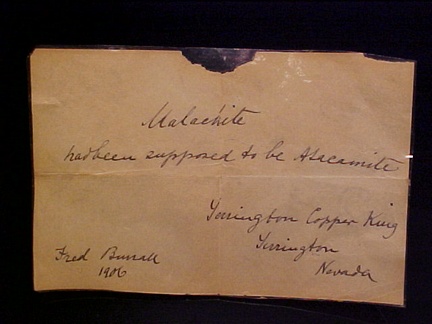 Malachite
had been supposed to be Atacamite
Yerrington Copper King
Yerrington
Nevada
Fred Burrall
1906